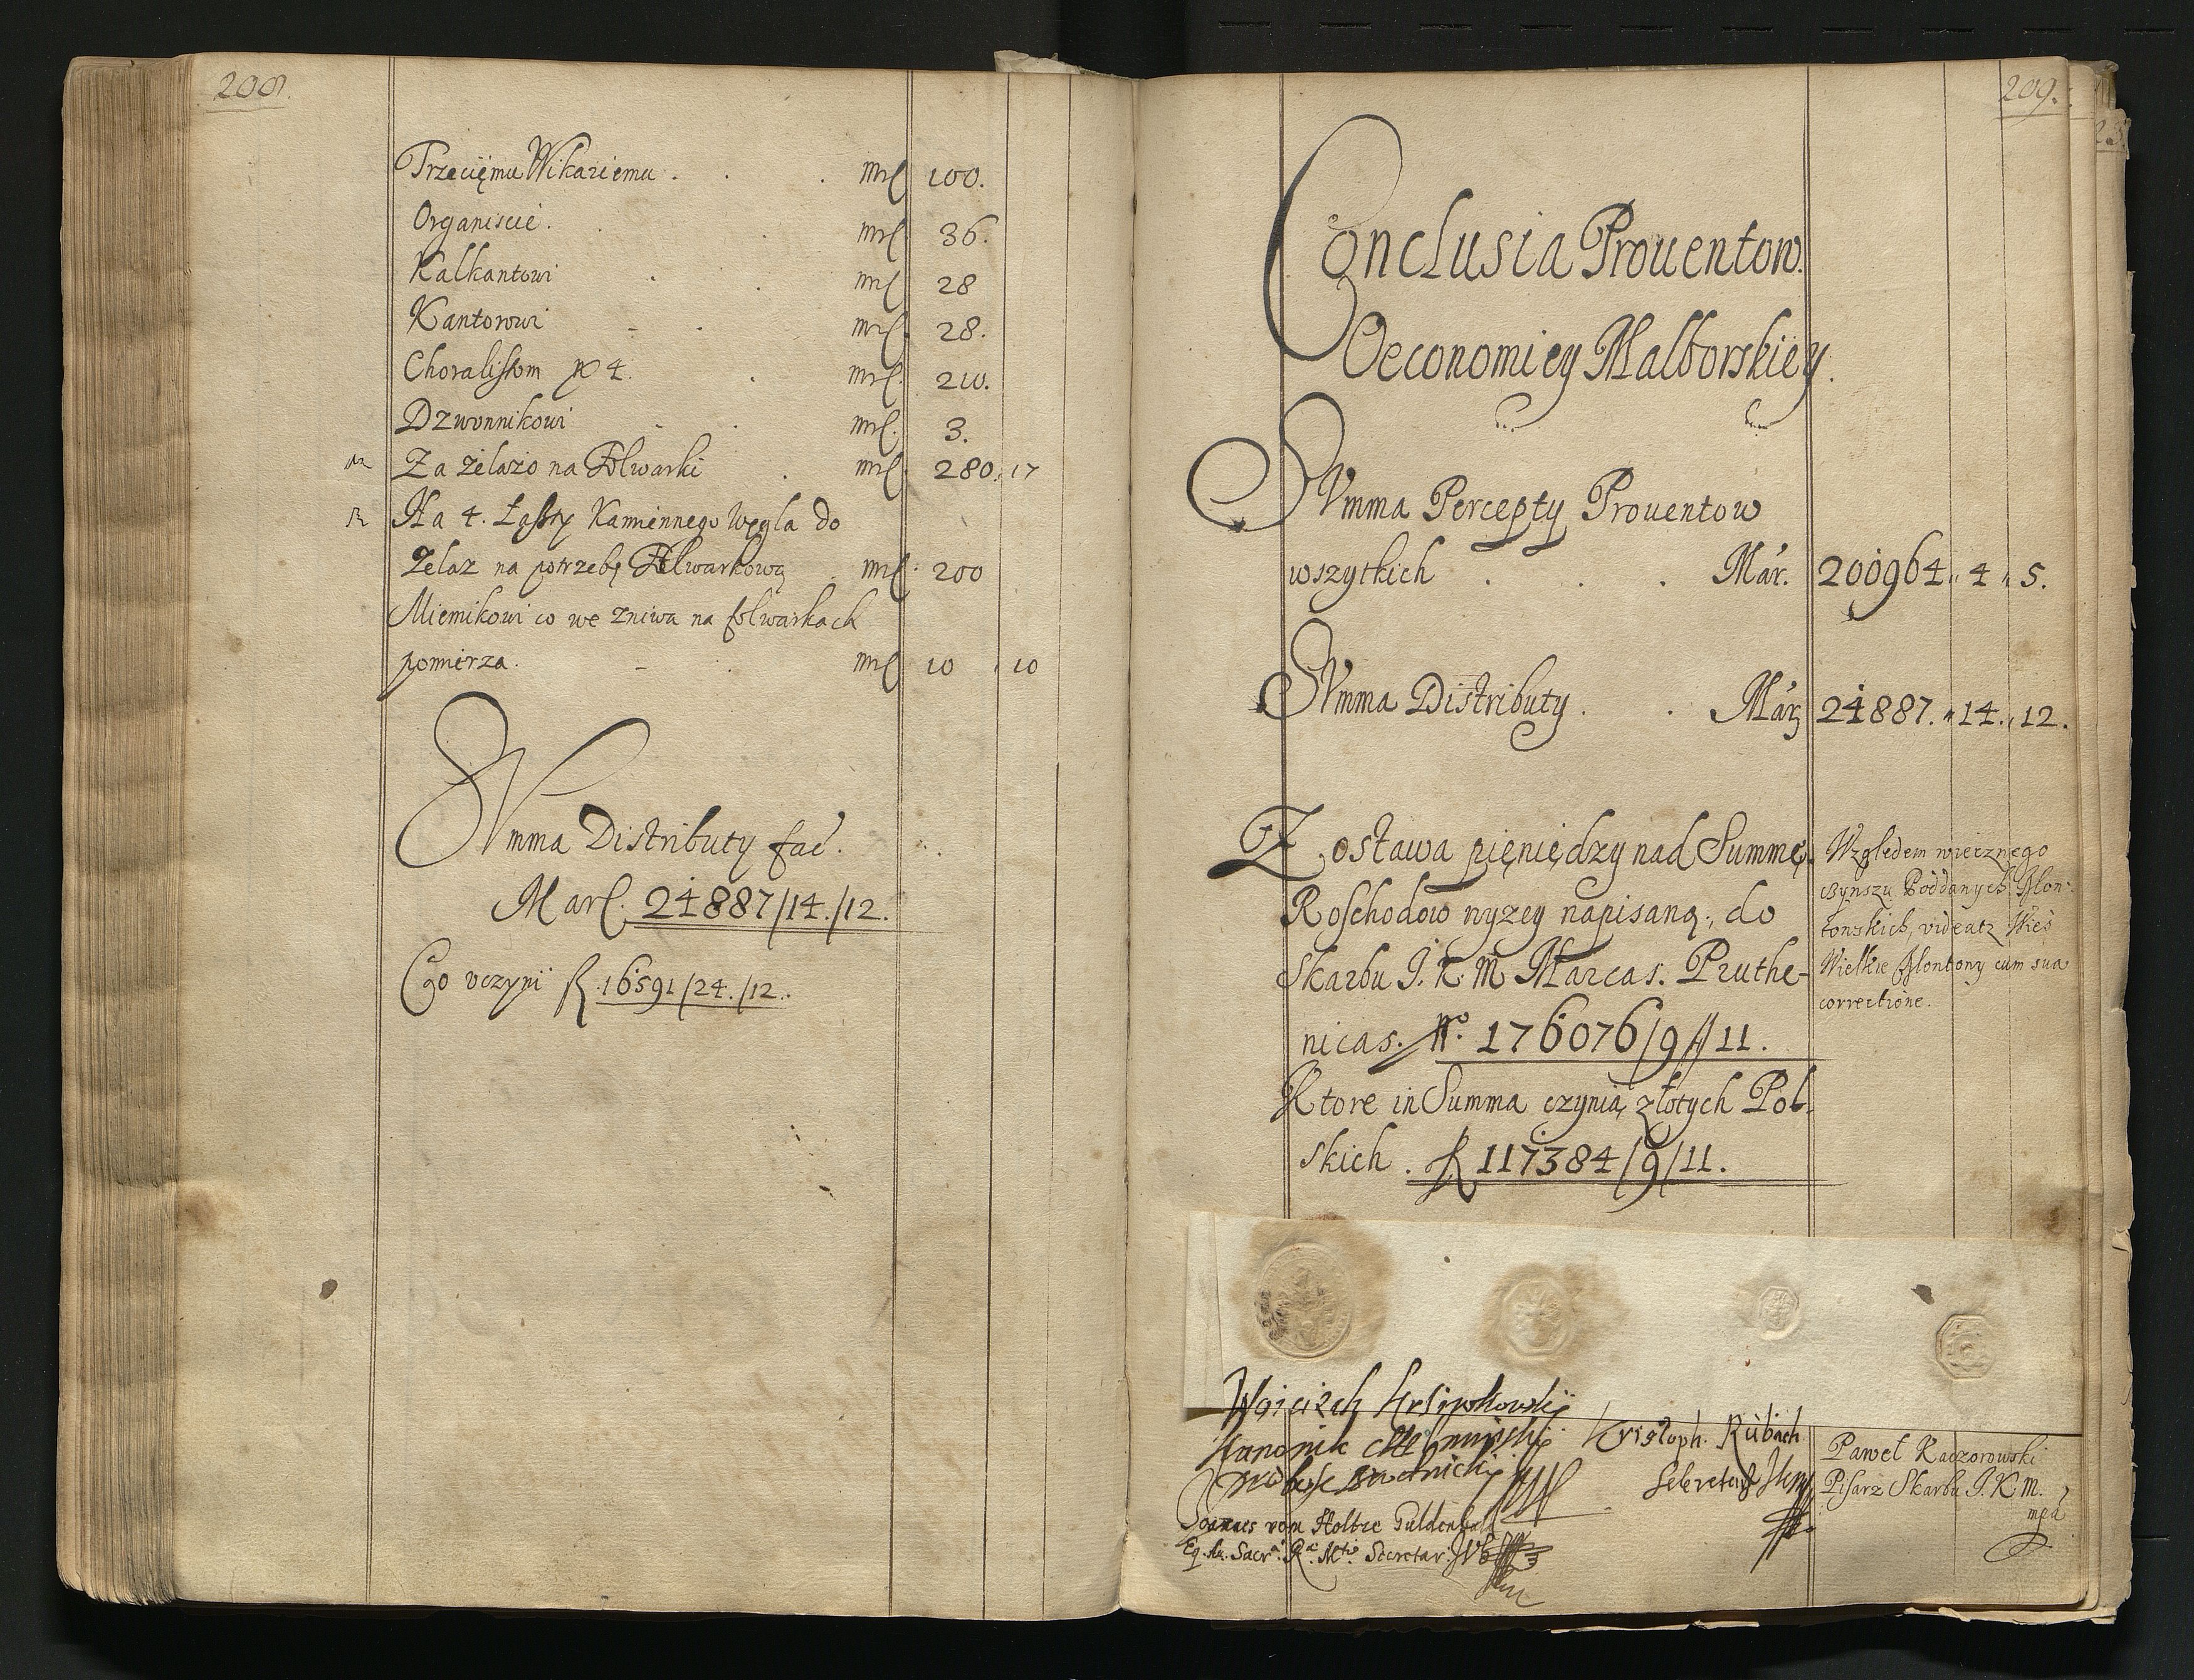 208.
Trzeciemu Wikariemu . . . mrč 100.
Organiscie . . . mrč 36.
Kalkantowi . . mrč 28
Kantorowi - . mrč 28.
Choralistom po 4. . mrč 210.
Dzwonnikowi - . mrč. 3.
Za żelazo na Folwarki . mrč 280. 17
Na 4. Łaszty Kamiennego Węgla do
Zelaz na potrzebę Folwarkową . mrč 200
Miernikowi co we zniwa na folwarkach
pomierza. - . mrč 10 10
SVmma Distributy fac̃.
Marč. 24887/14./12.
Co vczyni fl. 16591/24./12.
209.
Conclusia Prouentow
Oeconomiey Malborskiey.
SVmma Percepty Prouentow
wszytkich . . . Már. 200964 „ 4 „ 5.
SVmma Distributy . . Már 24887. „ 14. „ 12.
Zostawa pięniędzy nad Summę
Roschodow wyzey napisaną, do
Skarbu J. K. M Marcas. Pruthe-
nicas. No. 176076/9//11.
Ktore in Summa czynią złotych Pol-
skich. fl 117384/9/11.
Względem wiecznego
czynszu Poddanych
videatz Wieś
Wielkie cum sua
correctione.
Woiciech
Kanonik Chełminski
Kristoph. Rubach
Sekretarz
Pawel Kaczorowski
Pisarz Skarbu J. K. M.
mpd
Joannes von Holtze Guldenbalk
Eq. Au. Sacrae Rae Mtis Secretar: